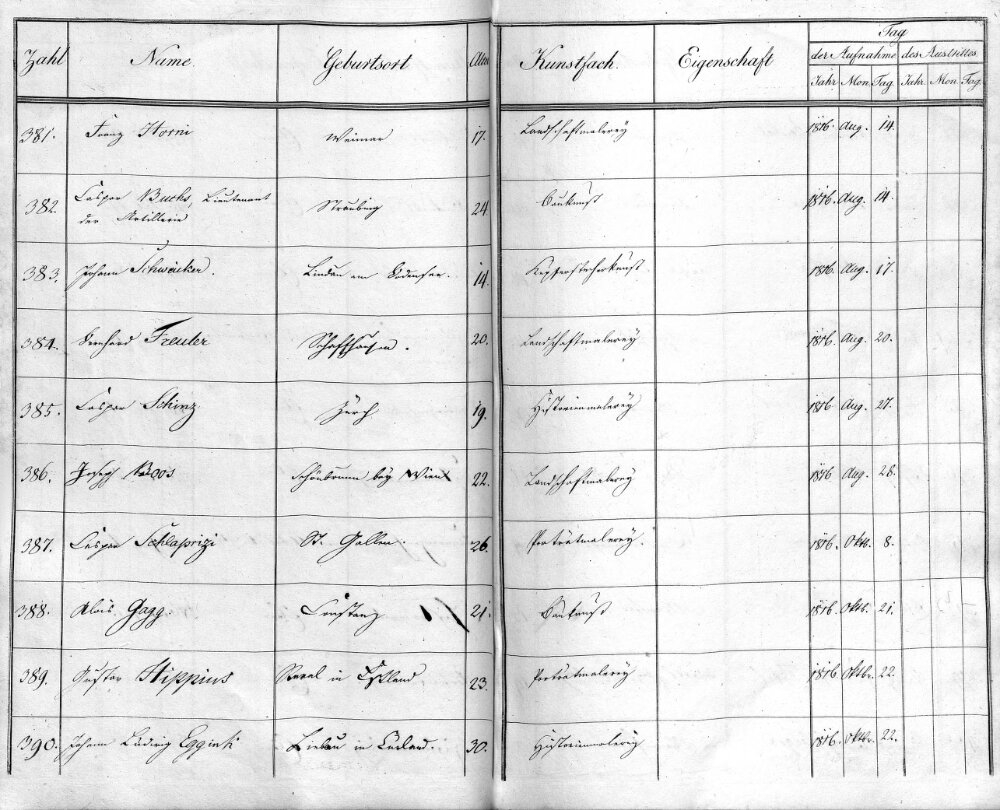 Zahl Name Geburtsort Alter Kunstfach. Eigenschaft Tag
der Aufnahme des Austrittes
Jahr Mon. Tag Jahr. Mon. Tag.
381. Franz Horni Weimar 17. Landschaftmalerey 1816 Aug. 14.
382. Caspar Buchs, Lieutenant Straubing 24 Baukunst 1816. Aug. 14.
der Artillerie
383. Johann Schwäcker. Lindau am Bodensee. 14. Kupferstecherkunst. 1816. Aug. 17.
384. Bernhard Freuler Schaffhausen. 20. Landschaftmalerey 1816 Aug. 20.
385. Caspar Schinz Zürch 19. Historienmalerey 1816 Aug. 27.
386. Joseph Schönbrunn bey Wien 22. Landschaftmalerey 1816 Aug. 28.
387. Caspar Schlaprizi St. Gallen. 26. Porträtmalerey. 1816. Okt. 8.
388. Alois Gagg Constanz 21. Baukunst 1816. Oktb. 21.
389. Gustav Hippius Reval in Esthland 23. Porträtmalerey 1816. Oktbr. 22.
390. Johann Ludwig Eggink Liebau in Curland. 30. Historienmalerey 1816. Oktbr. 22.